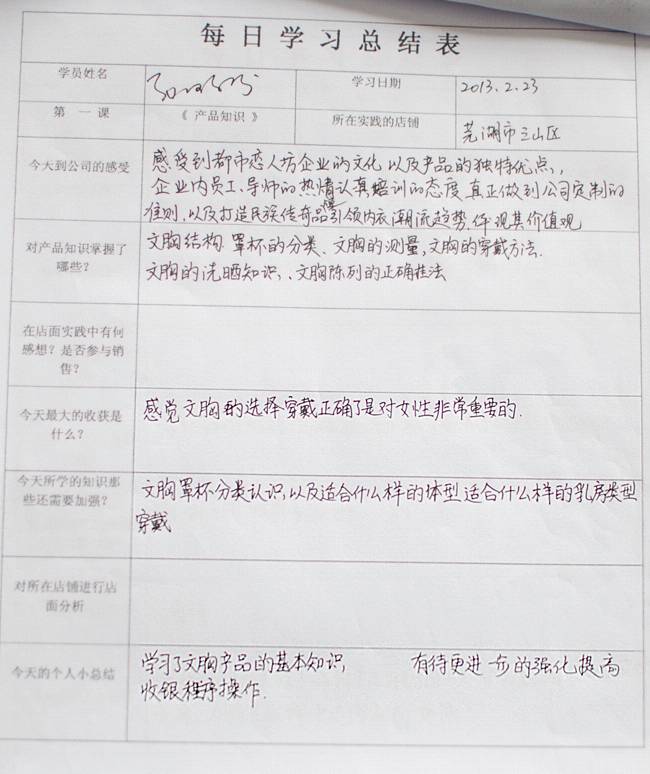 每日学习总结表
学员姓名
学习日期
2013.2.23
第 一 课
《 产品知识 》
所在实践的店铺
芜湖市三山区
今天到公司的感受
感受到都市恋人坊企业的文化以及产品的独特优点,,
企业内员工、导师的热情认真培训的态度 真正做到公司定制的
准则,以及打造民族传奇品牌引领内衣潮流趋势,体现其价值观
对产品知识掌握了
哪些?
文胸结构、罩杯的分类、文胸的测量,文胸的穿戴方法.
文胸的洗晒知识,、文胸陈列的正确挂法
在店面实践中有何
感想?是否参与销
售?
今天最大的收获是
什么?
感觉文胸的选择穿戴正确了是对女性非常重要的.
今天所学的知识那
些还需要加强?
文胸罩杯分类认识,以及适合什么样的体型 适合什么样的乳房类型
穿戴
对所在店铺进行店
面分析
今天的个人小总结
学习了文胸产品的基本知识, 有待更进一步的强化提高
收银程序操作.